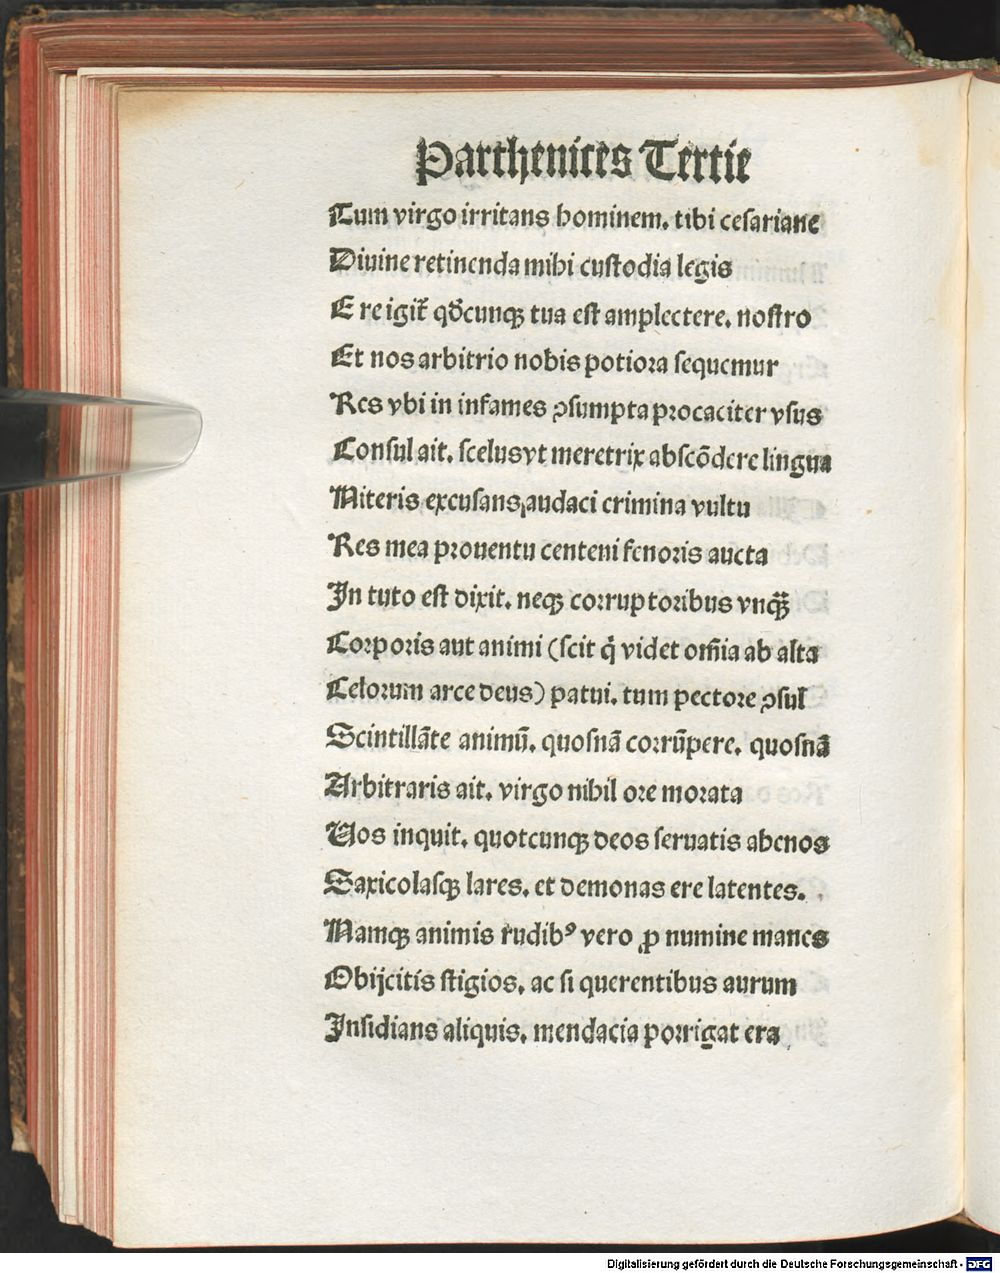 Parthenices Tertie
Tum virgo irritans hominem. tibi cesariane
Diuine retinenda mihi custodia legis
E re igit̃ qd̾cunqꝫ tua est amplectere. nostro
Et nos arbitrio nobis potiora sequemur
Res vbi in infames ꝯsumpta procaciter vsus
Consul ait. scelusvt meretrix abscōdere lingua
Niteris excusans, audaci crimina vultu
Res mea prouentu centeni fenoris aucta
In tuto est dixit. neqꝫ corruptoribus vnqꝫ̃
Corporis aut animi (scit q̇ videt om̄ia ab alta
Celorum arce deus) patui. tum pectore ꝯsul
Scintillāte animū. quosnā corrūpere. quosnā
Arbitraris ait. virgo nihil ore morata
Uos inquit. quotcunqꝫ deos seruatis ahenos
Saxicolasqꝫ lares. et demonas ere latentes.
Namqꝫ animis rudibꝰ vero ꝓ numine manes
Obijcitis stigios. ac si querentibus aurum
Insidians aliquis. mendacia porrigat era
Digitalisierung gefördert durch die Deutsche Forschungsgemeinschaft - DFG